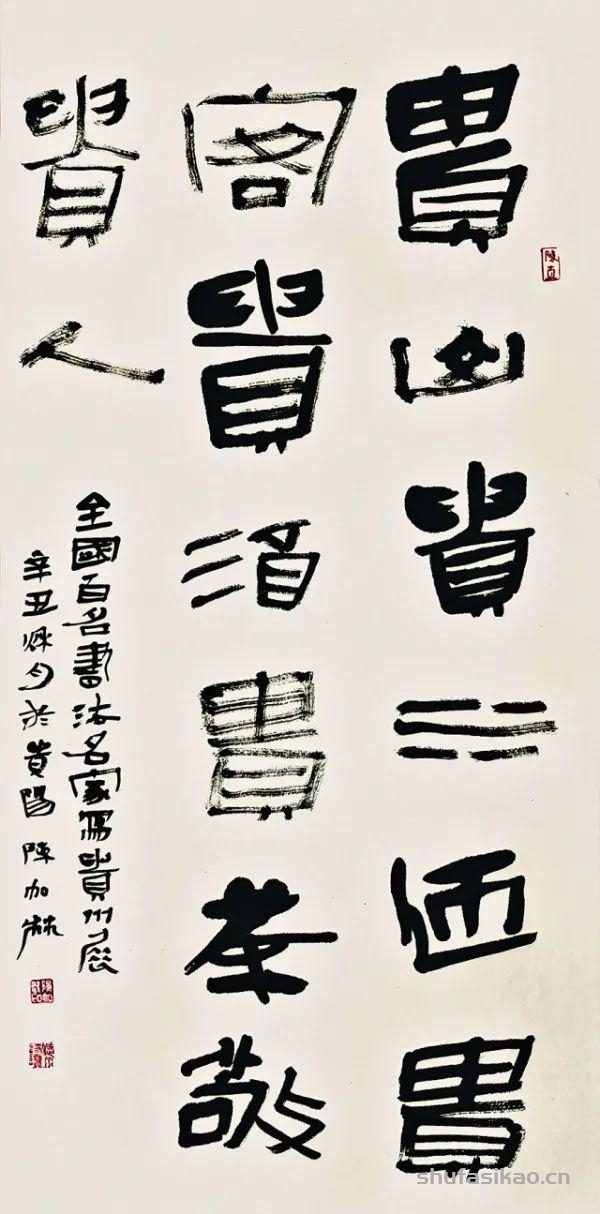 貴山貴水迎貴
客貴酒貴茶敬
貴人
全國百名書法名家寫貴州展
辛丑秋月於貴陽陳加林
shufasikao.cn